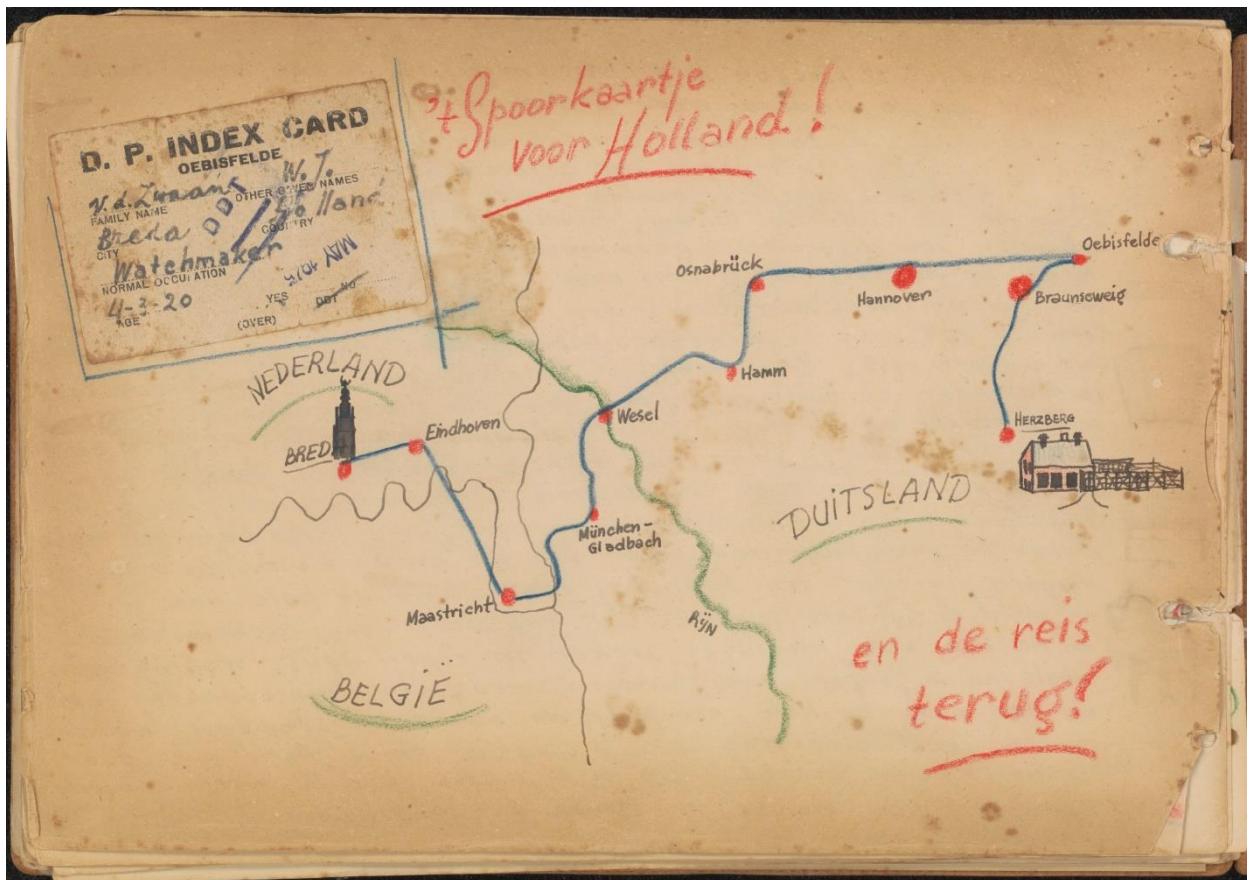 D. P. INDEX CARD
OEBISFELDE
v.d. Zwaan W.J.
FAMILY NAME OTHER GIVEN NAMES
Breda Holland
CITY COUNTRY
DDT
Watchmaker
NORMAL OCCUPATION
MAY 1945
4-3-20
AGE
YES NO
DDT
(OVER)
't Spoorkaartje
voor Holland!
NEDERLAND
BREDA
Eindhoven
Maastricht
BELGIË
München-
Gladbach
Wesel
Hamm
Osnabrück
Hannover
Oebisfelde
Braunsweig
HERZBERG
DUITSLAND
RIJN
en de reis
terug!